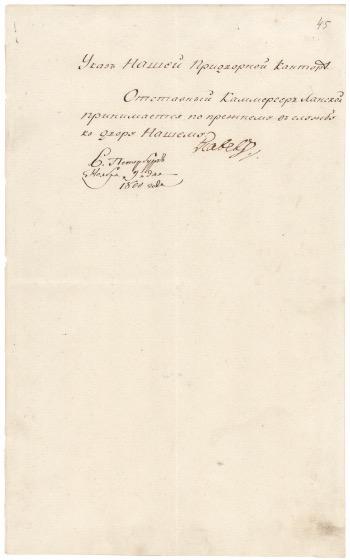 45
Указъ Нашей Придворной Канторѣ
Отставный Каммергеръ Ланской
принимается по прежнему въ службу
ко двору Нашему.
Павелъ
С. Петербургъ
Ноября 9 дня
1800 года